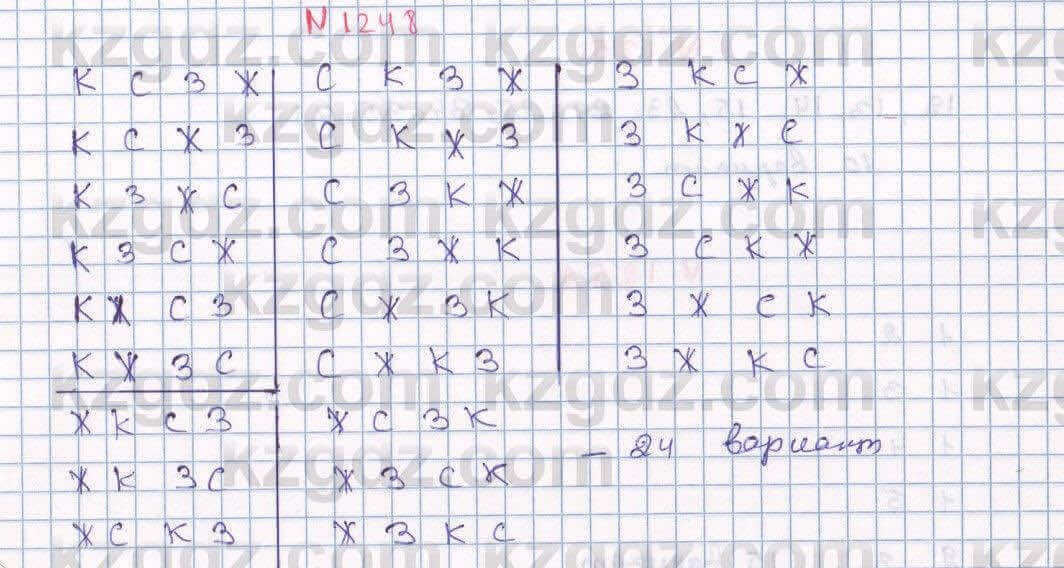 N 1248
К С З Ж С К З Ж З К С Ж
К С Ж З С К Ж З З К Ж С
К З Ж С С З К Ж З С Ж К
К З С Ж С З Ж К З С К Ж
К Ж С З С Ж З К З Ж С К
К Ж З С С Ж К З З Ж К С
Ж К С З Ж С З К
– 24 вариант
Ж К З С Ж З С К
Ж С К З Ж З К С
kzgdz.com